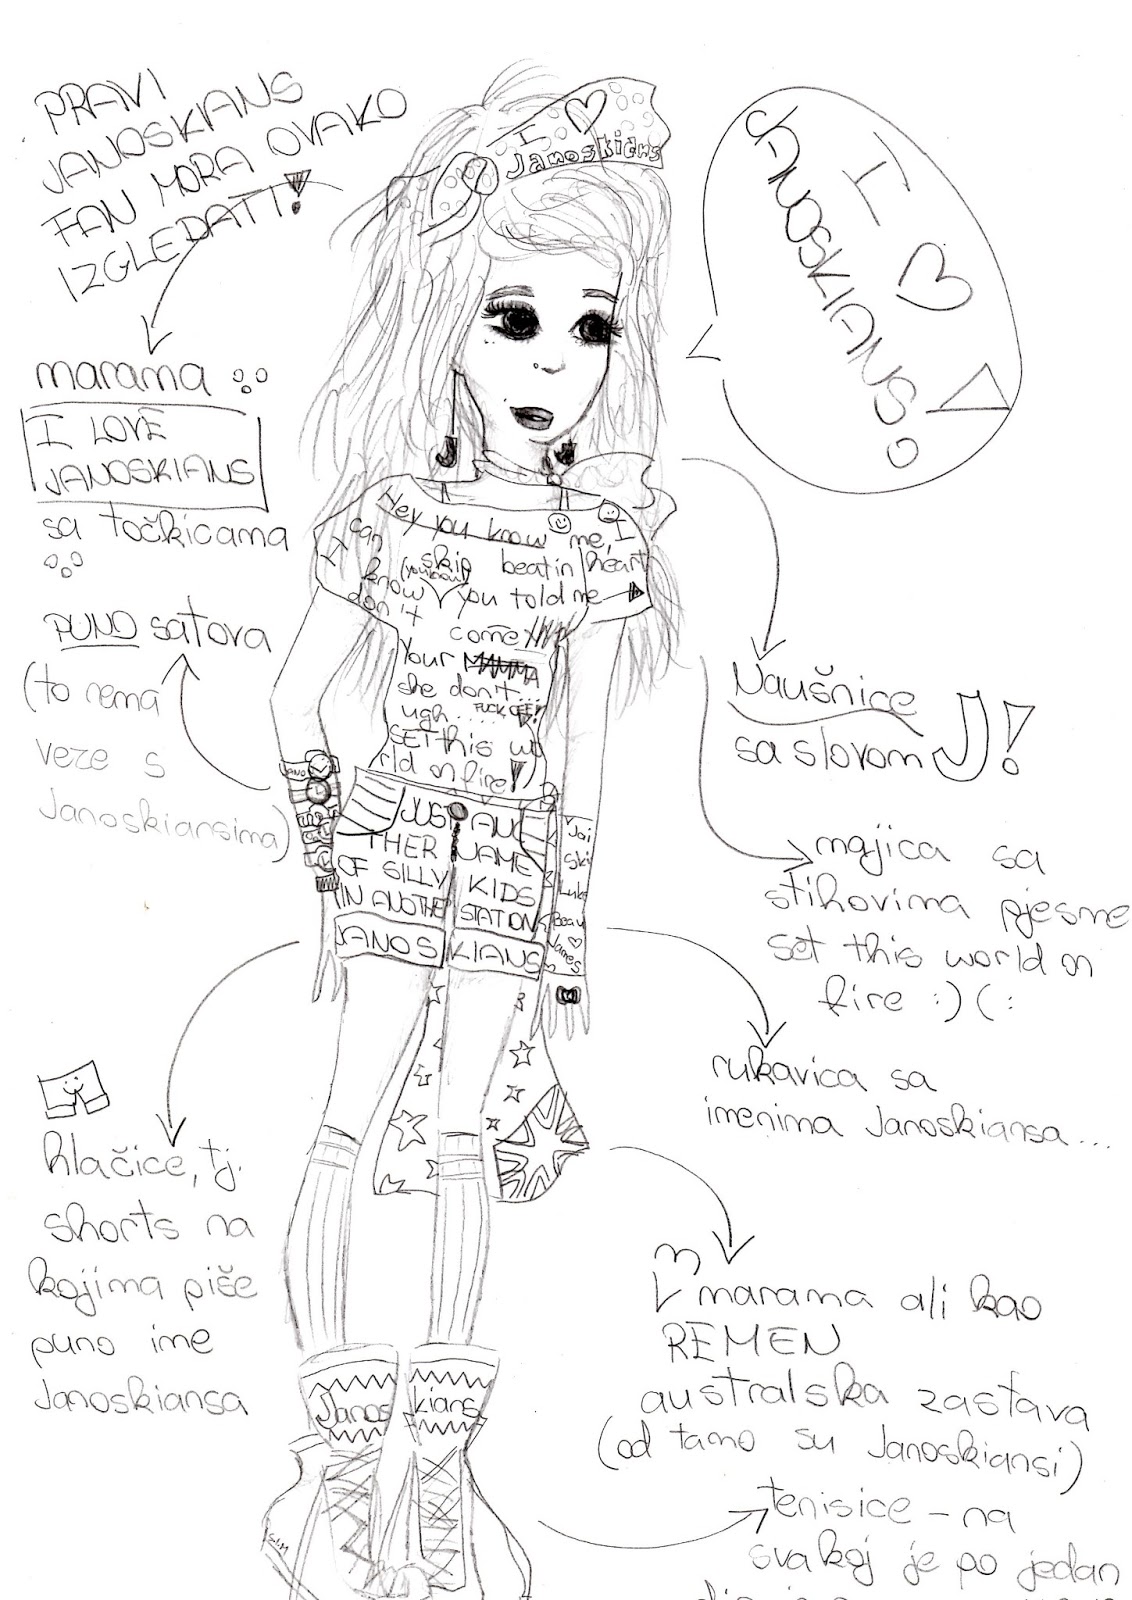 PRAVI
JANOSKIANS
FAN MORA OVAKO
IZGLEDATI!
I ♡
Janoskians
I ♡
JANOSKIANS
marama
I LOVE
JANOSKIANS
sa točkicama
PUNO satova
(to nema
veze s
Janoskiansima)
Hey you know me, I
can skip beatin heart
I know (you know) you told me
don't
come
Your MAMMA
she don't...
ugh.... FUCK OFF!
SET this wo
rld on fire
JUST ANO
THER NAME
OF SILLY KIDS
IN ANOTHE STATION
JANOS KIANS
Jai
Skip
Luke
Beau
James
Naušnice
sa slovom J!
majica sa
stihovima pjesme
set this world on
fire :) (:
rukavica sa
imenima Janoskiansa...
hlačice, tj.
shorts na
kojima piše
puno ime
Janoskiansa
marama ali kao
REMEN
australska zastava
(od tamo su Janoskiansi)
Janos kians
tenisice - na
svakoj je po jedan